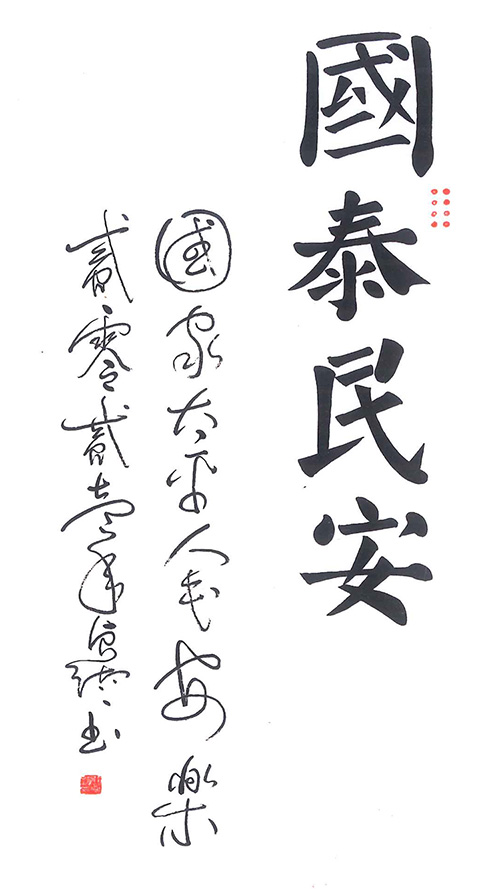 國泰民安
國家太平人民安樂
貳零貳壹年
書